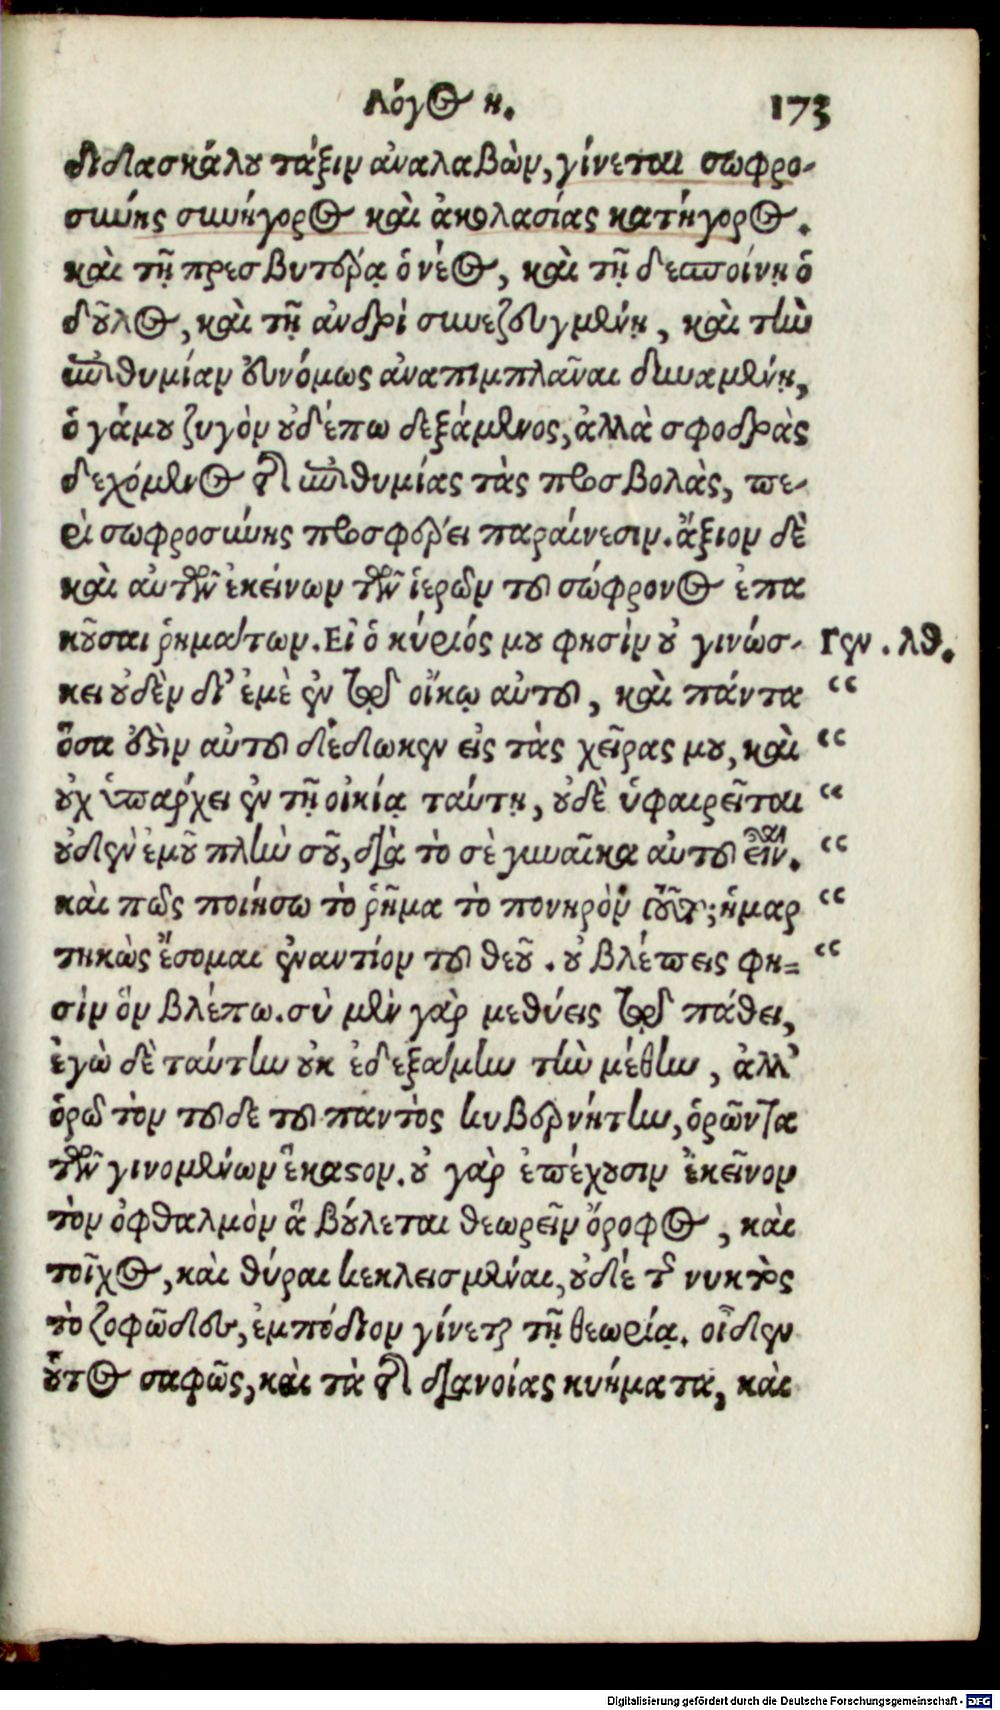 Λόγος η. 173
διδασκάλου τάξιν ἀναλαβὼν, γίνεται σωφρο-
σύνης συνήγορος καὶ ἀκολασίας κατήγορος.
καὶ τῇ πρεσβυτέρᾳ ὁ νέος, καὶ τῇ δεσποίνῃ ὁ
δοῦλος, καὶ τῇ ἀνδρὶ συνεζευγμένῃ, καὶ τὴν
ἐπιθυμίαν εὐνόμως ἀναπιμπλᾶναι δυναμένῃ,
ὁ γάμου ζυγὸν οὐδέπω δεξάμενος, ἀλλὰ σφοδρὰς
δεχόμενος τῆς ἐπιθυμίας τὰς προσβολὰς, πε-
ρὶ σωφροσύνης προσφέρει παραίνεσιν. ἄξιον δὲ
καὶ αὐτῶν ἐκείνων τῶν ἱερῶν τοῦ σώφρονος ἐπα
κοῦσαι ῥημάτων. Εἰ ὁ κύριός μου φησὶν οὐ γινώσ- Γεν. λθ.
κει οὐδὲν δι' ἐμὲ ἐν τῷ οἴκῳ αὐτοῦ, καὶ πάντα “
ὅσα ἐστὶν αὐτοῦ δέδωκεν εἰς τὰς χεῖρας μου, καὶ “
οὐχ ὑπάρχει ἐν τῇ οἰκίᾳ ταύτῃ, οὐδὲ ὑφαιρεῖται “
οὐδὲν ἐμοῦ πλὴν σοῦ, διὰ τὸ σὲ γυναῖκα αὐτοῦ εἶναι. “
καὶ πῶς ποιήσω τὸ ῥῆμα τὸ πονηρὸν τοῦτο; ἡμαρ “
τηκὼς ἔσομαι ἐναντίον τοῦ θεοῦ. οὐ βλέπεις φη- “
σὶν ὃν βλέπω. σὺ μὲν γὰρ μεθύεις τῷ πάθει,
ἐγὼ δὲ ταύτην οὐκ ἐδεξάμην τὴν μέθην, ἀλλ'
ὁρῶ τὸν τοῦδε τοῦ παντὸς κυβερνήτην, ὁρῶντα
τῶν γινομένων ἕκαστον. οὐ γὰρ ἐπέχουσιν ἐκεῖνον
τὸν ὀφθαλμὸν ἃ βούλεται θεωρεῖν ὄροφος, καὶ
τοῖχος, καὶ θύραι κεκλεισμέναι, οὐδὲ τῆς νυκτὸς
τὸ ζοφῶδες, ἐμπόδιον γίνεται τῇ θεωρίᾳ. οἶδεν
οὗτος σαφῶς, καὶ τὰ τῆς διανοίας κυήματα, καὶ
Digitalisierung gefördert durch die Deutsche Forschungsgemeinschaft - DFG